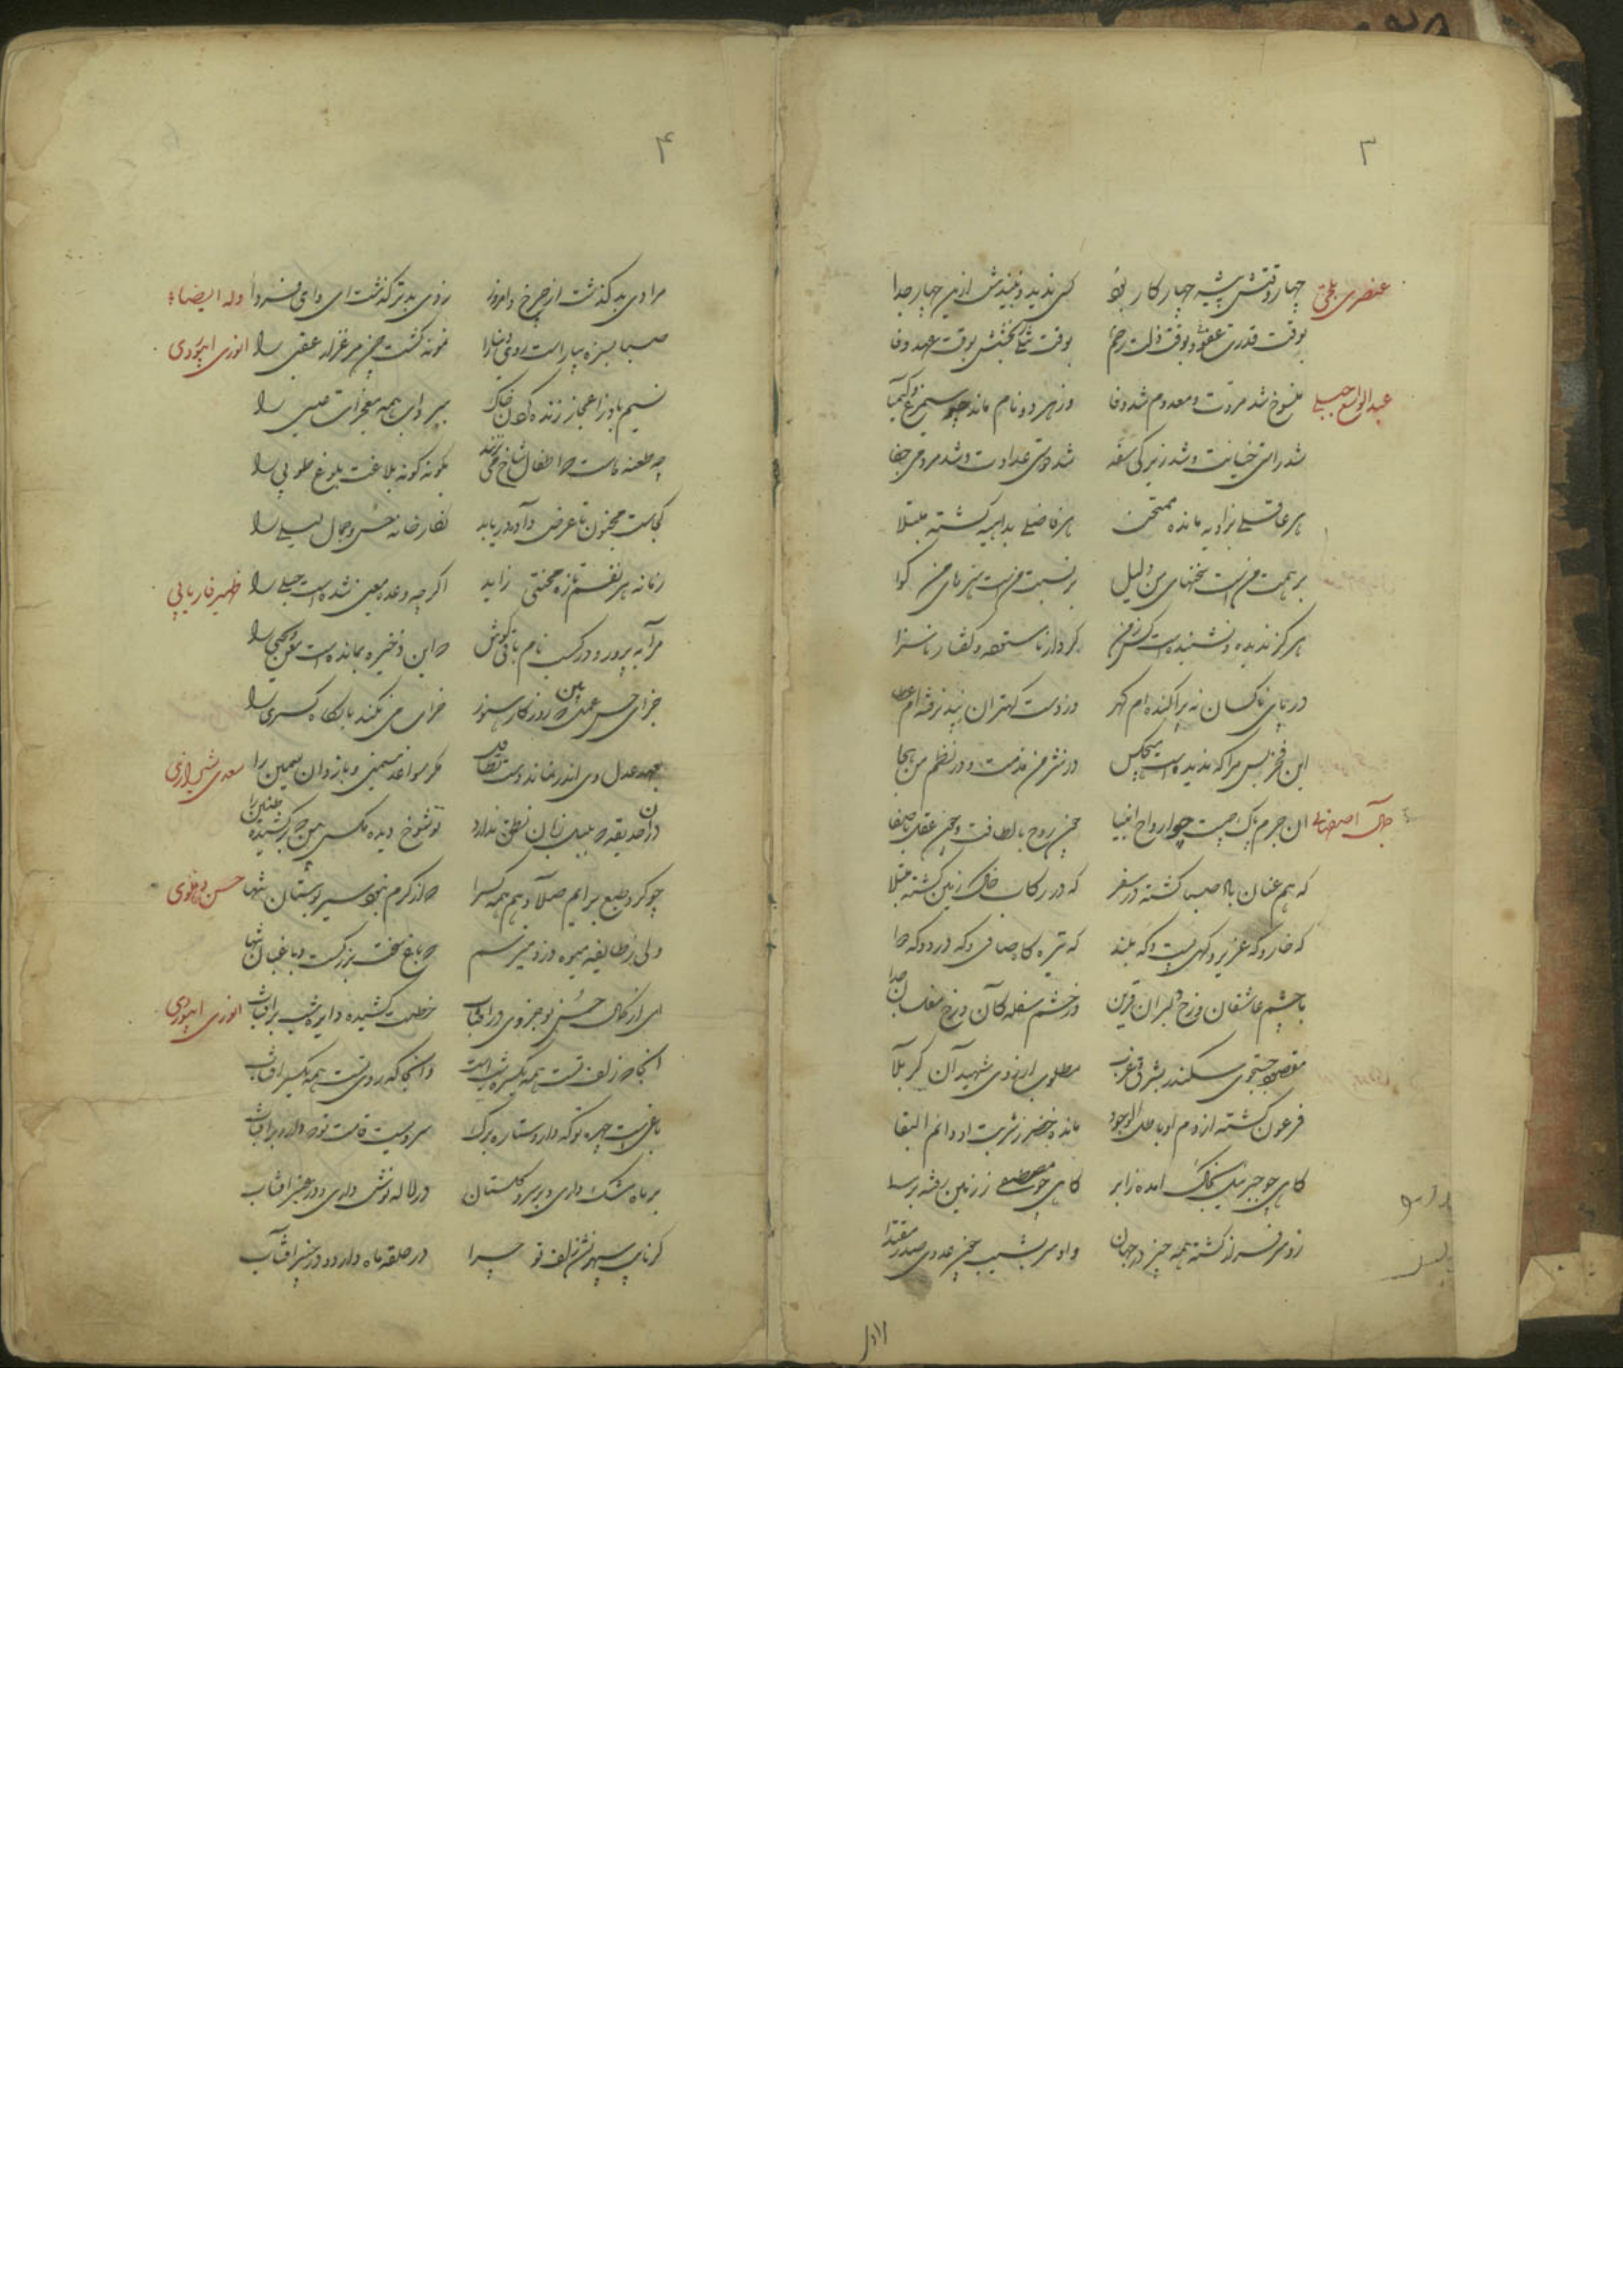 ۳
عنصری بلخی چهار وقتش پیشه چهار کار بود کس ندید و نبیندش ازین چهار جدا
بوقت قدرت عفو و بوقت زلت رحم بوقت تنگی بخشش بوقت عهد وفا
عبدالواسع جبلی منسوخ شد مروت و معدوم شد وفا وز هر دو نام ماند چو سیمرغ و کیمیا
شد راستی خیانت و شد زیرکی سفه شد دوستی عداوت و شد مردمی جفا
هر عاقلی بزاویه مانده ممتحن هر فاضلی بداهیه گشته مبتلا
بر همت من است سخنهای من دلیل بر نسبت من است هنرهای من گوا
هرگز ندیده و نشنیده است کس ز من کردار ناستوده و گفتار ناسزا
در پای ناکسان نپراکنده ام گهر وز دست کهتران نپذیرفته ام عطا
این فخر بس مرا که ندیده است هیچکس در نثر من مذمت و در نظم من هجا
جمال اصفهانی ان جرم پاک چیست چو ارواح انبیا چون روح با لطافت و چون عقل با صفا
که هم عنان باد صبا گشته در سفر که در رکاب خاک زمین گشته مبتلا
که خار و که عزیز و گهی پست و که بلند که تیره گاه صافی و که درد و که دوا
با چشم عاشقان و رخ دلبران قرین وز خشم سفلگان و رخ مفلسان جدا
مقصود جستجوی سکندر بشرق و غرب مطلوب ارزوی شهیدان کربلا
فرعون گشته از دم او باطل الوجود مانده خضر ز شربت او دائم البقا
گاهی چو جبرئیل بخاک امده ز ابر گاهی چو مصطفی ز زمین رفته بر سما
زو سرفراز گشته همه چیز در جهان و او سر بشیب چون عدوی صدر مقتدا
۴
مرا دی بد گذشت از چرخ و امروز ز دی بدتر گذشت ای وای فردا وله ایضا
صبا بسبزه بیاراست روی دنیا را نمونه گشت چمن مرغزار عقبی را انوری ابیوردی
نسیم باد ز اعجاز زنده کردن خاک ببرد اب همه معجزات عیسی را
چه طعنه هاست که اطفال شاخ می نزنند بگونه گونه بلاغت بلوغ طوبی را
کجاست مجنون تا عرض داده دریابد نگارخانه حسن و جمال لیلی را
زمانه هر نفسم تازه محنتی زاید اگر چه وعده معین شده است حبلی را ظهیر فاریابی
جزای حسن عمل بین که روزگار هنوز خراب می نکند بارگاه کسری را
بعهد عدل وی اندر نماند دست تطاول مگر سواعد سیمین و بازوان سمین را سعدی شیرازی
در ان حدیقه که بلبل زبان نطق ندارد تو شوخ دیده مگس بین که برکشیده طنین را
حسن دهلوی
ولی ز طایفه میوه دزد میترسم که باغ سخت بزرگست و باغبان تنها
ای از کمال حسن تو جزوی در افتاب خطت کشیده دایره شب بر افتاب انوری ابیوردی
انجا که زلف تست همه یکسره شب است و انجا که روی تست همه یکسر افتاب
باغیست چهره تو که دارد ستاره برگ سرویست قامت تو که دارد بر افتاب
بر ماه مشک داری و بر سرو گلستان در لاله نوش داری و در عنبر افتاب
گر نایب سپهر نشد زلف تو چرا در حلقه ماه دارد و در چنبر افتاب